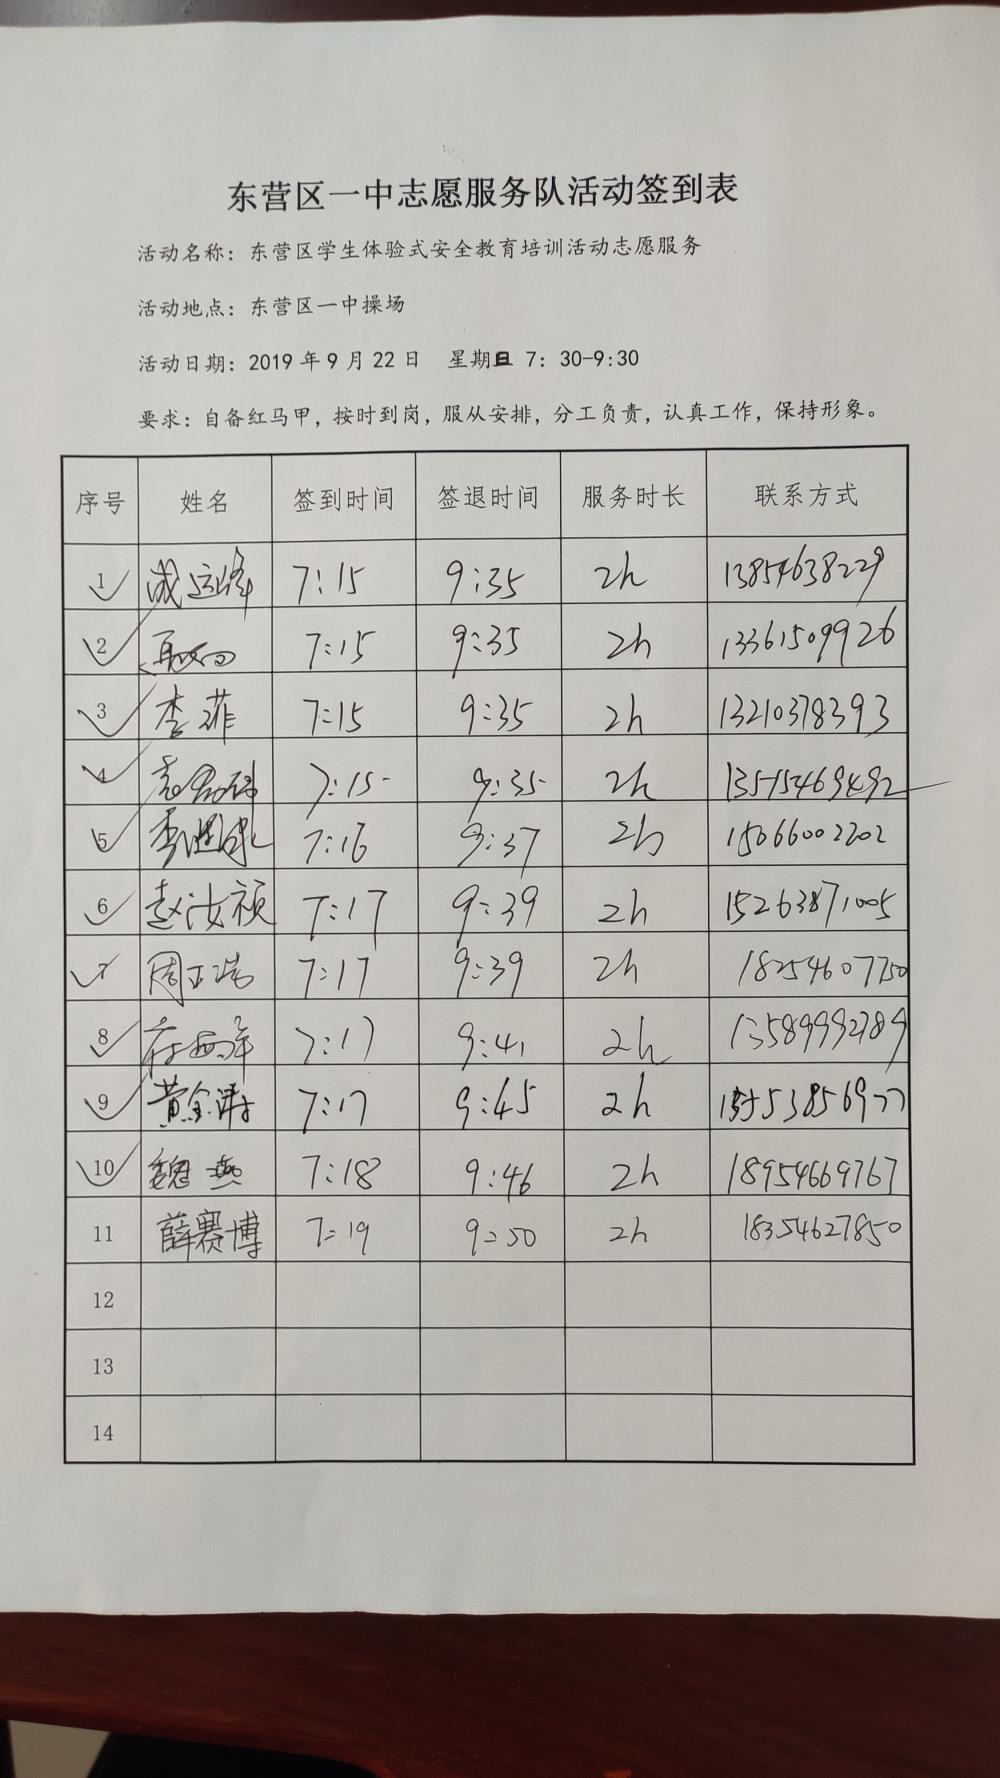 东营区一中志愿服务队活动签到表
活动名称：东营区学生体验式安全教育培训活动志愿服务
活动地点：东营区一中操场
活动日期：2019 年 9 月 22 日 星期日 7：30-9:30
要求：自备红马甲，按时到岗，服从安排，分工负责，认真工作，保持形象。
序号 姓名 签到时间 签退时间 服务时长 联系方式
1 7:15 9:35 2h 13854638229
2 7:15 9:35 2h 13361509926
3 李菲 7:15 9:35 2h 13210378393
4 7:15 9:35 2h 13515469492
5 7:16 9:37 2h 15066002202
6 赵汝祯 7:17 9:39 2h 15263871005
7 7:17 9:39 2h 18254607750
8 7:17 9:41 2h 13589992789
9 7:17 9:45 2h
10 魏燕 7:18 9:46 2h 18954669767
11 薛赛博 7:19 9:50 2h 18354627850
12
13
14